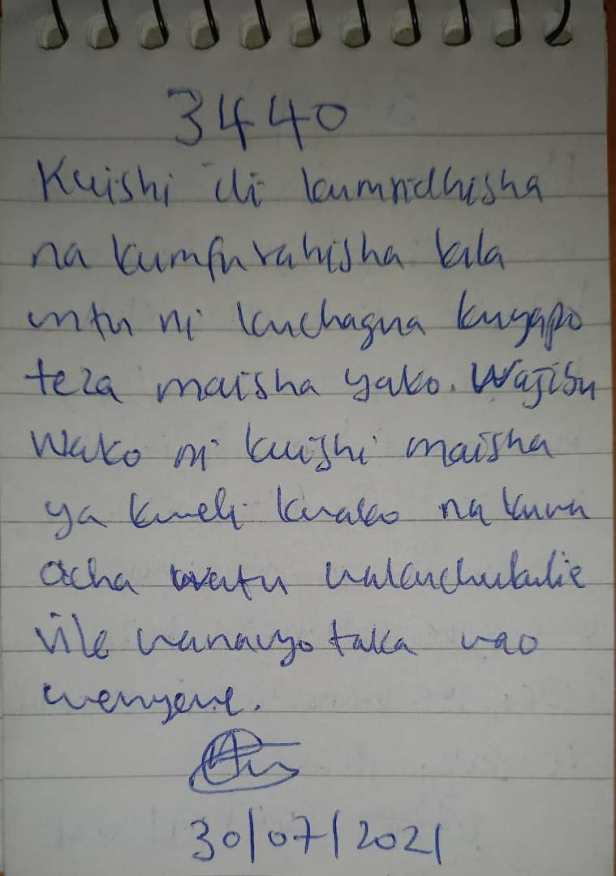 3440
Kuishi ili kumridhisha
na kumfurahisha kila
mtu ni kuchagua kuyapo
teza maisha yako. Wajibu
wako ni kuishi maisha
ya kweli kwako na kuwa
acha watu wakuchukulie
vile wanavyo taka wao
wenyewe.
30/07/2021